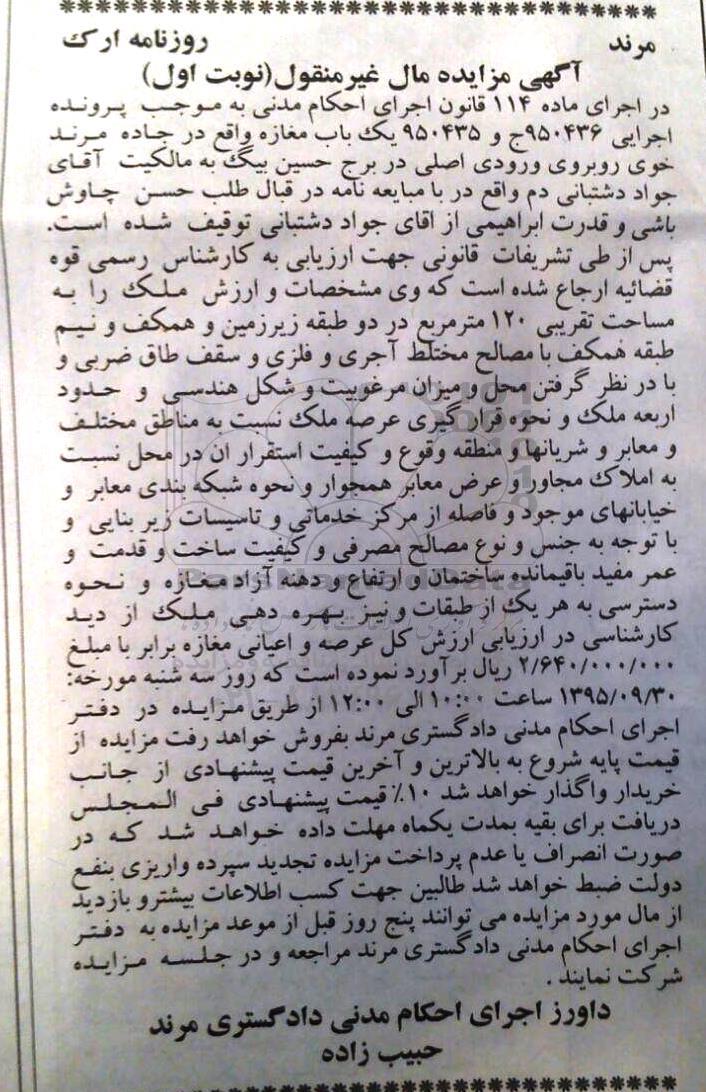 مرند
روزنامه ارک
آگهی مزایده مال غیرمنقول(نوبت اول)
در اجرای ماده ۱۱۴ قانون اجرای احکام مدنی به موجب پرونده
اجرایی ۹۵۰۴۳۶ج و ۹۵۰۴۳۵ یک باب مغازه واقع در جاده مرند
خوی روبروی ورودی اصلی در برج حسین بیگ به مالکیت آقای
جواد دشتبانی دم واقع در با مبایعه نامه در قبال طلب حسن چاوش
باشی و قدرت ابراهیمی از اقای جواد دشتبانی توقیف شده است.
پس از طی تشریفات قانونی جهت ارزیابی به کارشناس رسمی قوه
قضائیه ارجاع شده است که وی مشخصات و ارزش ملک را به
مساحت تقریبی ۱۲۰ مترمربع در دو طبقه زیرزمین و همکف و نیم
طبقه همکف با مصالح مختلط آجری و فلزی و سقف طاق ضربی و
با در نظر گرفتن محل و میزان مرغوبیت و شکل هندسی و حدود
اربعه ملک و نحوه قرار گیری عرصه ملک نسبت به مناطق مختلف
و معابر و شریانها و منطقه وقوع و کیفیت استقرار ان در محل نسبت
به املاک مجاور و عرض معابر همجوار و نحوه شبکه بندی معابر و
خیابانهای موجود و فاصله از مرکز خدماتی و تاسیسات زیر بنایی و
با توجه به جنس و نوع مصالح مصرفی و کیفیت ساخت و قدمت و
عمر مفید باقیمانده ساختمان و ارتفاع و دهنه آزاد مغازه و نحوه
دسترسی به هر یک از طبقات و نیز بهره دهی ملک از دید
کارشناسی در ارزیابی ارزش کل عرصه و اعیانی مغازه برابر با مبلغ
۲/۶۴۰/۰۰۰/۰۰۰ ریال برآورد نموده است که روز سه شنبه مورخه:
۱۳۹۵/۰۹/۳۰ ساعت ۱۰:۰۰ الی ۱۲:۰۰ از طریق مزایده در دفتر
اجرای احکام مدنی دادگستری مرند بفروش خواهد رفت مزایده از
قیمت پایه شروع به بالاترین و آخرین قیمت پیشنهادی از جانب
خریدار واگذار خواهد شد ۱۰٪ قیمت پیشنهادی فی المجلس
دریافت برای بقیه بمدت یکماه مهلت داده خواهد شد که در
صورت انصراف یا عدم پرداخت مزایده تجدید سپرده واریزی بنفع
دولت ضبط خواهد شد طالبین جهت کسب اطلاعات بیشترو بازدید
از مال مورد مزایده می توانند پنج روز قبل از موعد مزایده به دفتر
اجرای احکام مدنی دادگستری مرند مراجعه و در جلسه مزایده
شرکت نمایند .
داورز اجرای احکام مدنی دادگستری مرند
حبیب زاده